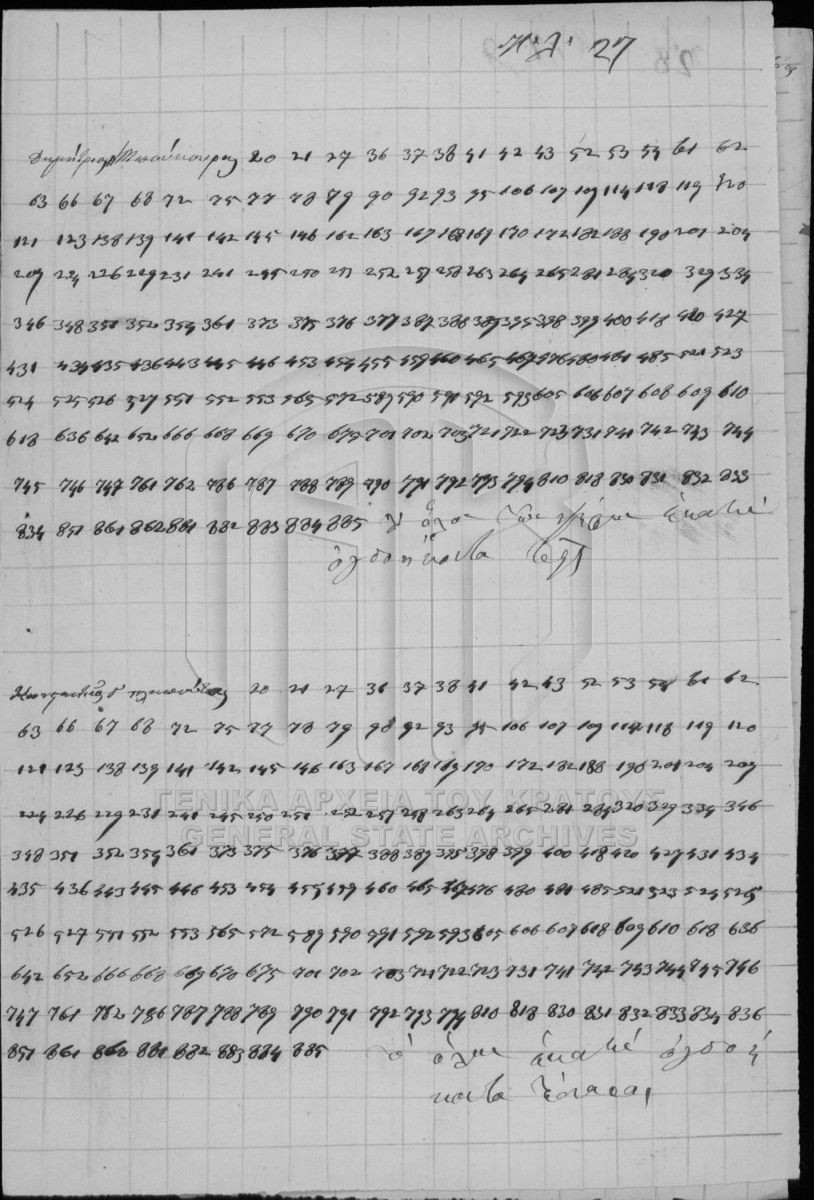 27
20 21 27 36 37 38 41 42 43 52 53 54 61 62
63 66 67 68 72 75 77 78 79 90 92 93 95 106 107 109 114 118 119 120
121 123 138 139 141 142 145 146 162 163 167 168 169 170 172 182 188 190 201 204
209 224 226 229 231 241 245 250 251 252 257 258 263 264 265 281 284 320 329 334
346 348 351 352 354 361 373 375 376 377 387 388 389 395 398 399 400 418 420 427
431 434 435 436 443 445 446 453 454 455 459 460 465 467 476 480 481 485 521 523
524 525 526 527 551 552 553 565 572 589 590 591 592 593 605 606 607 608 609 610
618 636 642 652 666 668 669 670 675 701 702 703 721 722 723 731 741 742 743 744
745 746 747 761 762 786 787 788 789 790 791 792 793 794 810 818 830 831 832 833
834 851 861 862 881 882 883 884 885 όλα εκατό
ογδοήκοντα
20 21 27 36 37 38 41 42 43 52 53 54 61 62
63 66 67 68 72 75 77 78 79 90 92 93 95 106 107 109 114 118 119 120
121 123 138 139 141 142 145 146 163 167 168 169 170 172 182 188 190 201 204 209
224 226 229 231 241 245 250 251 252 257 258 263 264 265 281 284 320 329 334 346
ΓΕΝΙΚΑ ΑΡΧΕΙΑ ΤΟΥ ΚΡΑΤΟΥΣ
GENERAL STATE ARCHIVES
348 351 352 354 361 373 375 376 377 388 389 395 398 399 400 418 420 427 431 434
435 436 443 445 446 453 454 455 459 460 465 467 476 480 481 485 521 523 524 525
526 527 551 552 553 565 572 589 590 591 592 593 605 606 607 608 609 610 618 636
642 652 666 668 669 670 675 701 702 703 721 722 723 731 741 742 743 744 745 746
747 761 782 786 787 788 789 790 791 792 793 794 810 818 830 831 832 833 834 836
851 861 862 881 882 883 884 885 όλα εκατό ογδοή
κοντα τέσσαρα